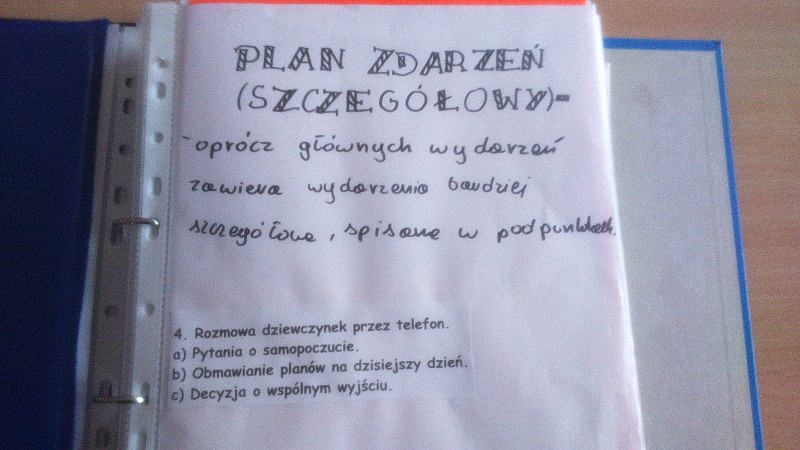 PLAN ZDARZEŃ
(SZCZEGÓŁOWY)-
-oprócz głównych wydarzeń
zawiera wydarzenia bardziej
szczegółowe, spisane w podpunktach.
4. Rozmowa dziewczynek przez telefon.
a) Pytania o samopoczucie.
b) Obmawianie planów na dzisiejszy dzień.
c) Decyzja o wspólnym wyjściu.